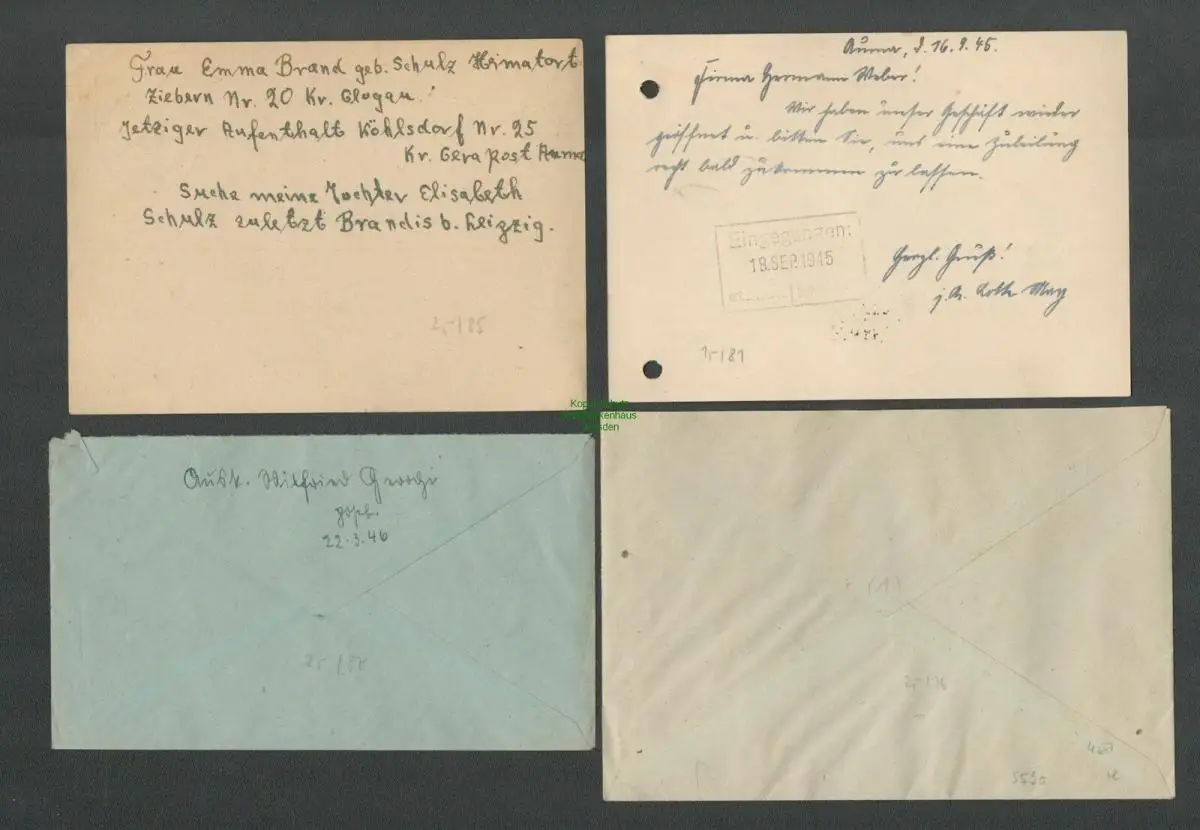 Frau Emma Brand geb. Schulz Himatort
Ziebern Nr. 20 Kr. Glogau.
Jetziger Aufenthalt Köhlsdorf Nr. 25
Kr. Gera post Auma
Suche meine Tochter Elisabeth
Schulz zuletzt Brandis b. Leipzig.
2,-/85
Auma, d. 16.9.45.
Firma Hermann Weber!
Wir haben unser Geschäft wieder
geöffnet u. bitten Sie, uns eine Zuteilung
recht bald zukommen zu lassen.
Eingegangen:
18. SEP. 1945
Herzl. Gruß!
Lotte May
1,-/81
Wilfried
22.3.46
(1)